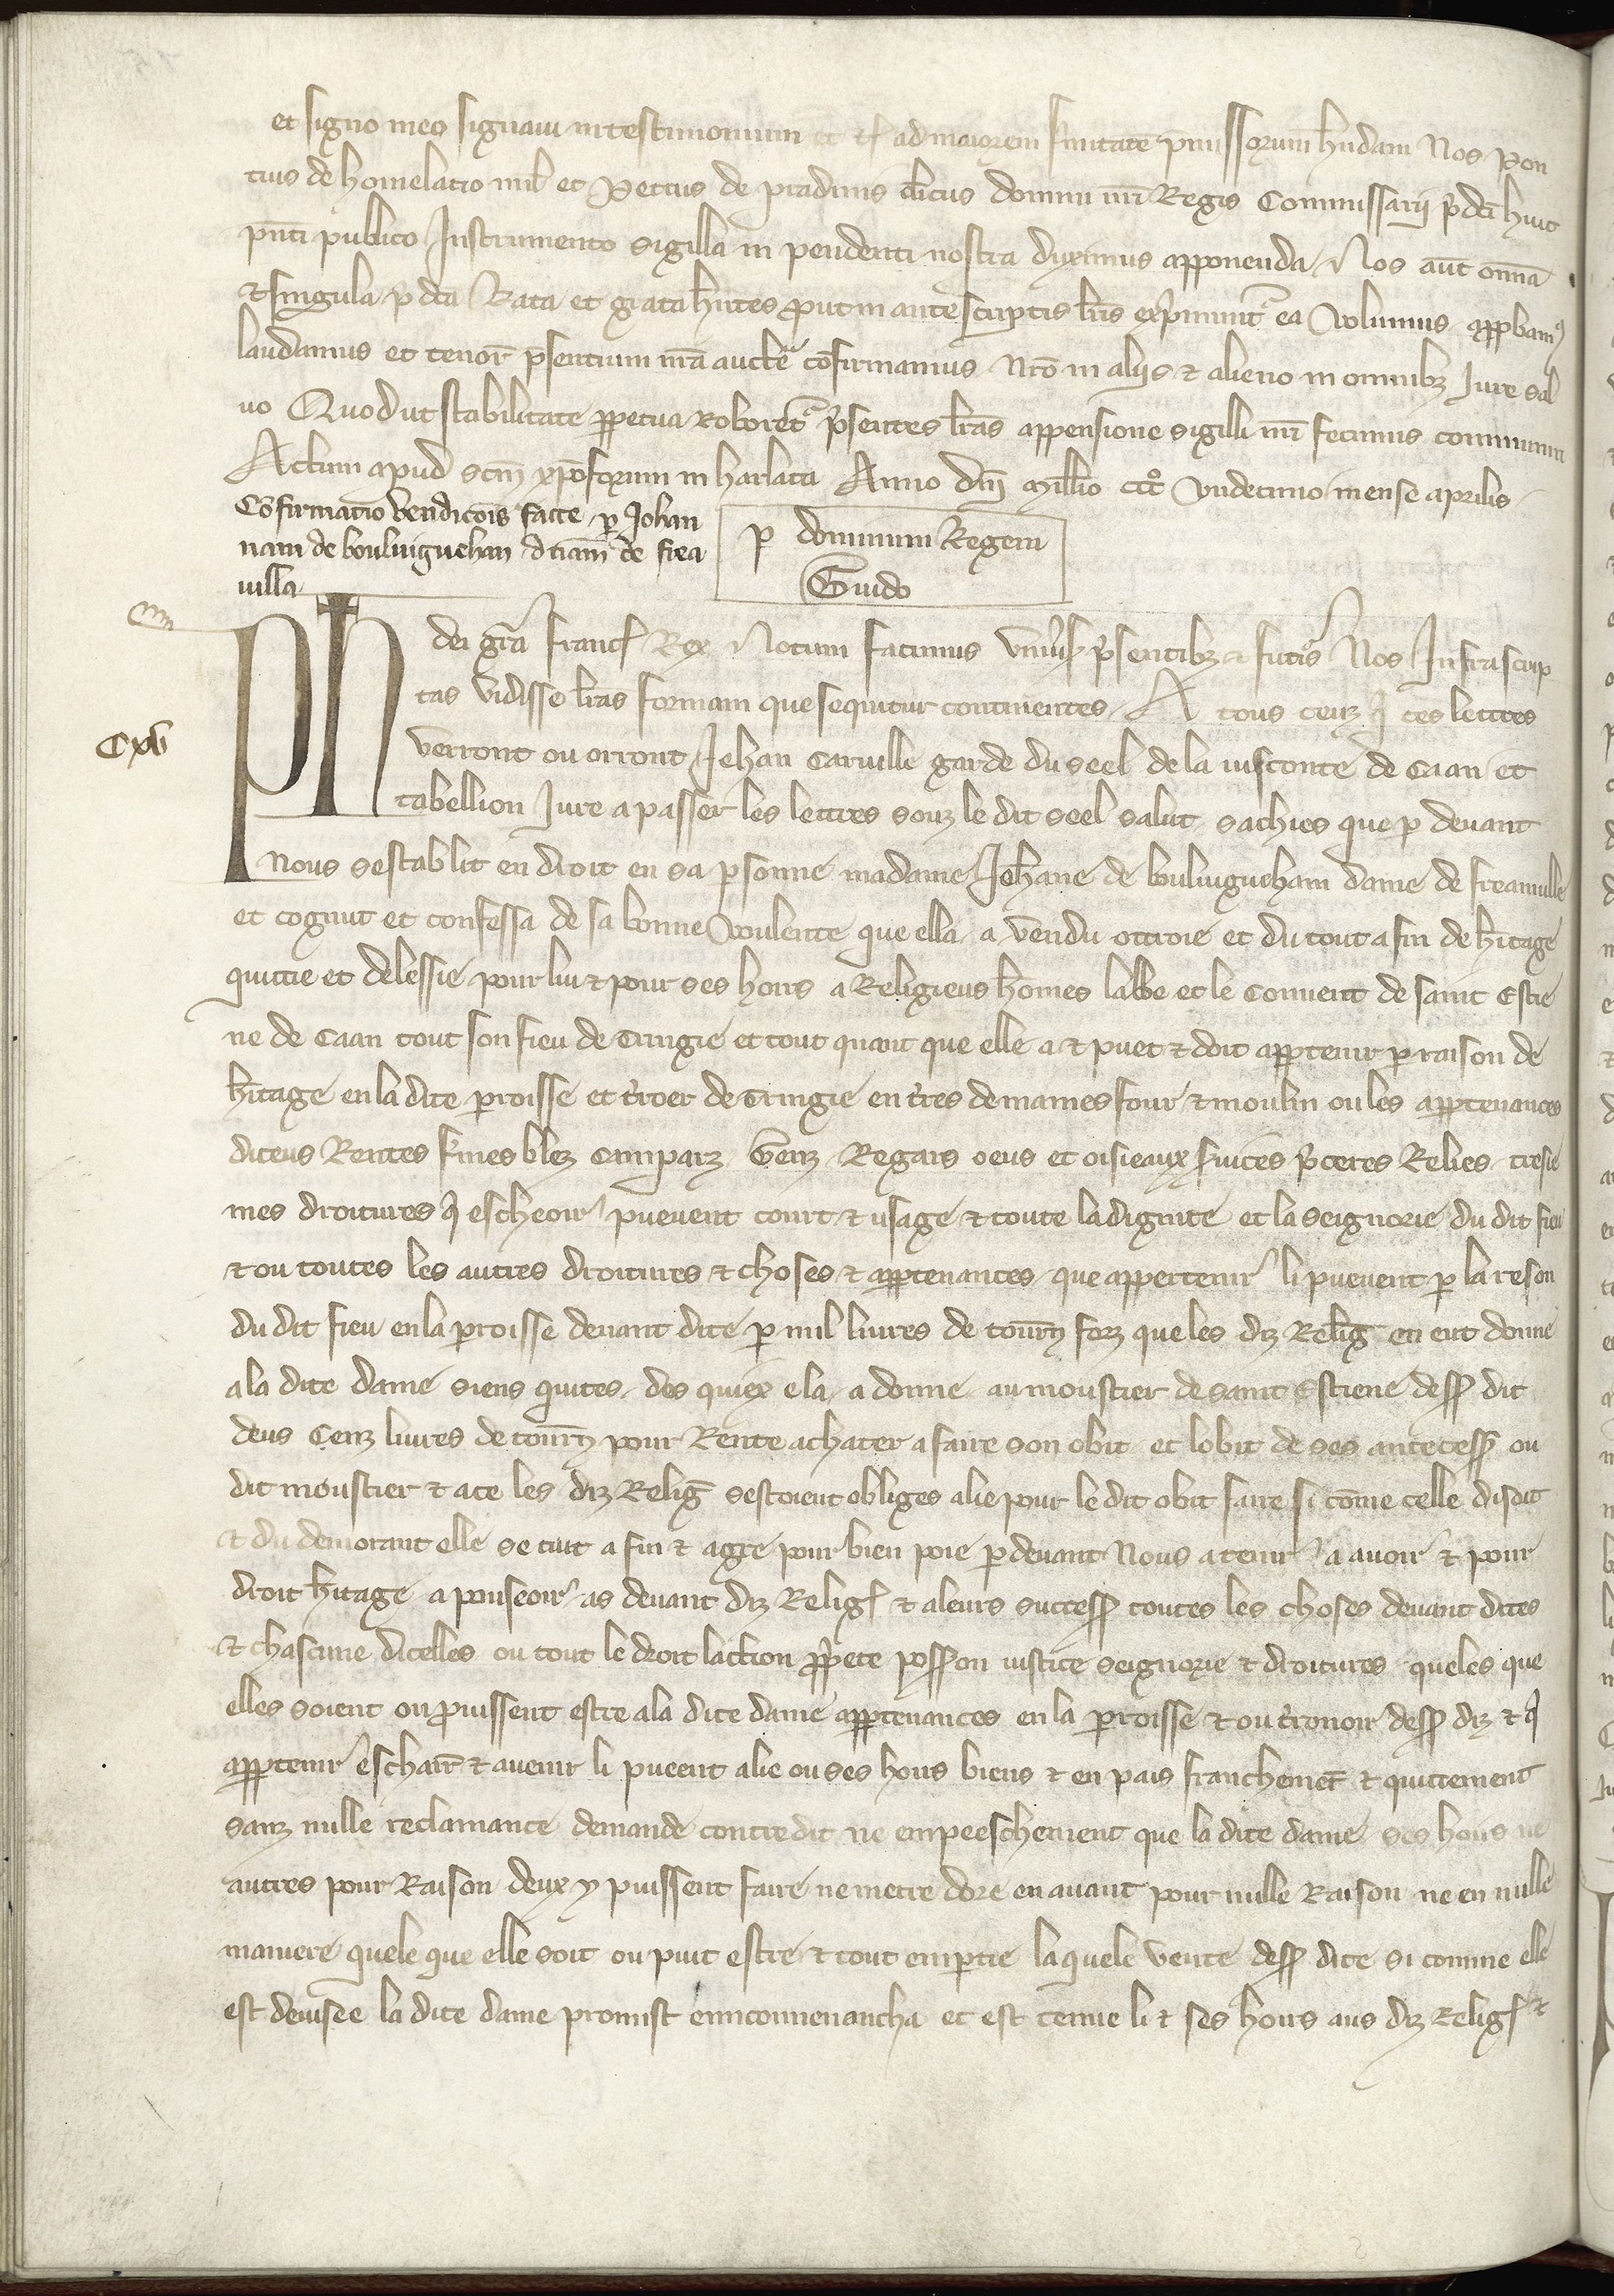 et signo meo signavi in testimonium et cet ad maiorem firmitate premissorum hndam Nos Pon
cius de homelacio mil et Petrus de pradinis clicus domini nri Regis Commissarii pdci huic
pnti publico Instrumento sigilla in pendenti nostra diximus apponenda Nos aut omia
et singula pdca Rata et grata hntes prout in ante scriptis lris exprimunt ea volumus appbam
laudamus et tenor psentium nra aucte cofirmamus Nro in aliis et alieno in omnibz Jure sal
vo Quod ut stabilitate ppetua Roboret psentes lras appensione sigilli nri fecimus communiri
Actum apud scm xpoforum in harlata Anno dni Millio ccc Undecimo mense aprilis
Cofirmatio vendicois facte p Johan
nam de bouluiguehan dnam de frea
villa
p dominum Regem
Guido
Ph dei gra Franc Rex Notum facimus Univsis psentibz et futis Nos Infrascrip
tas vidisse lras formam que sequitur continentes A tous ceuz q ces lettres
Cxv
verront ou orront Jehan Carville garde du seel de la visconte de Caan et
tabellion Jure a passer les lettres souz le dit seel salut sachies que p devant
nous sestablit en droit en sa psonne madame Jehane de bouluigueham dame de freauville
et cognut et confessa de sa bonne voulente que ella a vendu ottroie et du tout a fin de hitage
quittie et delessie pour lui et pour ses hoirs a Religieus homes labbe et le Convent de saint Estie
ne de Caan tout son fieu de Tringie et tout quant que elle a et puet et doit apptenir p raison de
hitage en la dite proisse et troer de Tringie en tres demaines four et moulin ou les apptenances
diceus Rentes fmes blez camparz Cenz Regars oeus et oisieaux svices pceres Relies tresie
mes droitures q escheoir puevent court et usage et toute la dignite et la seignorie du dit fieu
et ou toutes les autres droitures et choses et apptenances que appertenir li puevent p la reson
du dit fieu en la proisse devant dite p mil livres de tourn forz que les diz Relig en ent donne
a la dite dame siens quites des quiex ela a donne au moustier de saint Estiene dess dit
deus Cenz livres de tourn pour Rente achater a faire son obit et lobit de ses antecess ou
dit moustier et ace les diz Relig sestoient obliges alie pour le dit obit faire si come celle disoit
et du demorant elle se tint a fin et agre pour bien poie p devant Nous a tenir a avoir et pour
droit hitage a pourseoir as devant diz Relig et aleurs success toutes les choses devant dites
et chascune dicelles ou tout le droit laction ppete posson iustice seignorie et droitures queles que
elles soient ou puissent estre ala dite dame apptenances en la proisse et ou tronoir dess diz et q
apptenir eschair et avenir li pueent alie ou ses hoirs biens et en pais franchemet et quittement
sanz nulle reclamance demande contredit ne empeeschement que la dite dame ses hoirs ne
autres pour Raison deux y puissent faire ne metre dore en avant pour nulle Raison ne en nulle
maniere quele que elle soit ou puit estre et tout emptie la quele vente dess dite si comme elle
est devisee la dite dame promist enniconvenancha et est tenue li et ses hoirs aus diz Relig et